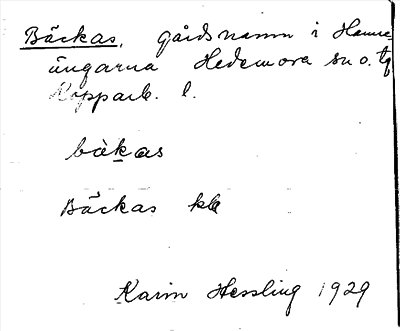 Bäckas, gårdsnamn i Hamre-
ängarna Hedemora sn o. tg
Kopparb. l.
bàkas
Bäckas kb
Karin Hessling 1929